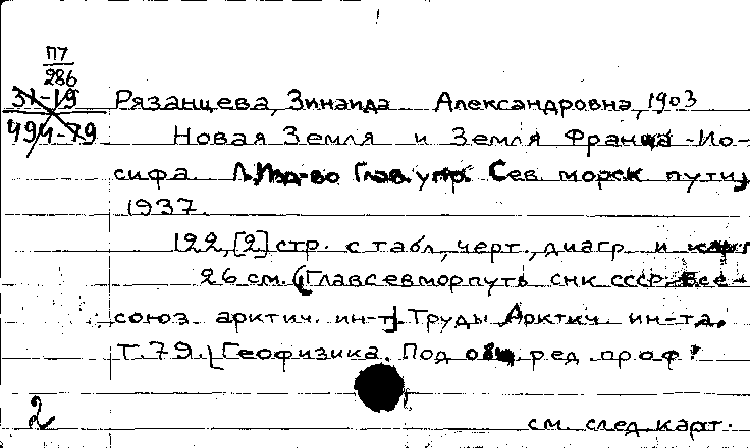 П7
286
31-19
494-79
Рязанцева, Зинаида Александровна, 1903
Новая Земля и Земля Франца-Ио-
сифа. Л., Изд-во Глав. упр. Сев. морск. пути,
1937.
122, [2] стр. с табл., черт., диагр. и карт
26 см. (Главсевморпуть СНК СССР. Все-
союз. арктич. ин-т. Труды Арктич. ин-та.
Т. 79. Геофизика. Под общ. ред. проф.
2
см. след. карт.